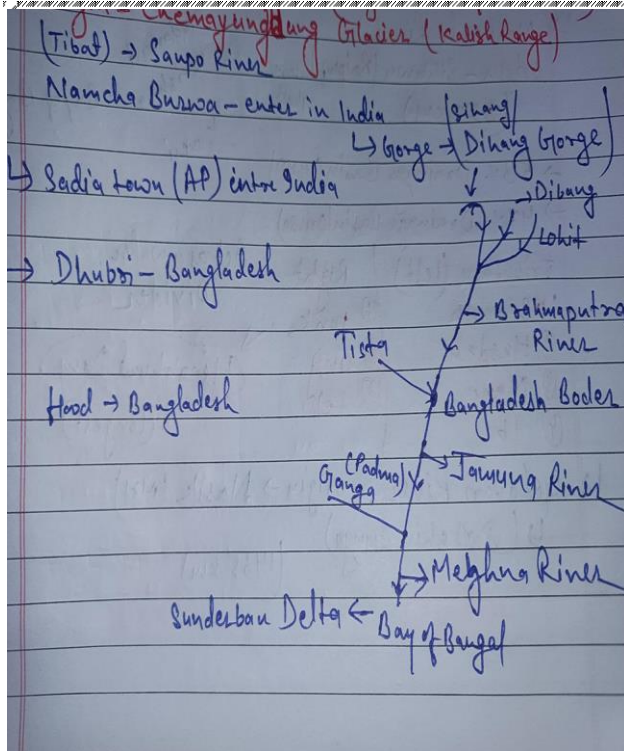 Chemayungdung Glacier (Kalish Range)
(Tibat) → Sanpo River
Namcha Burwa - enter in India
(sihang/
↳ Gorge → Dihang Gorge)
↳ Sadia town (AP) entre India
→ Dibang
Lohit
→ Dhubri - Bangladesh
→ Brahmaputra
River
Tista
Hood → Bangladesh
Bangladesh Boder
(Padma)
Ganga
→ Jamuna River
→ Meghna River
Sunderban Delta ← Bay of Bangal